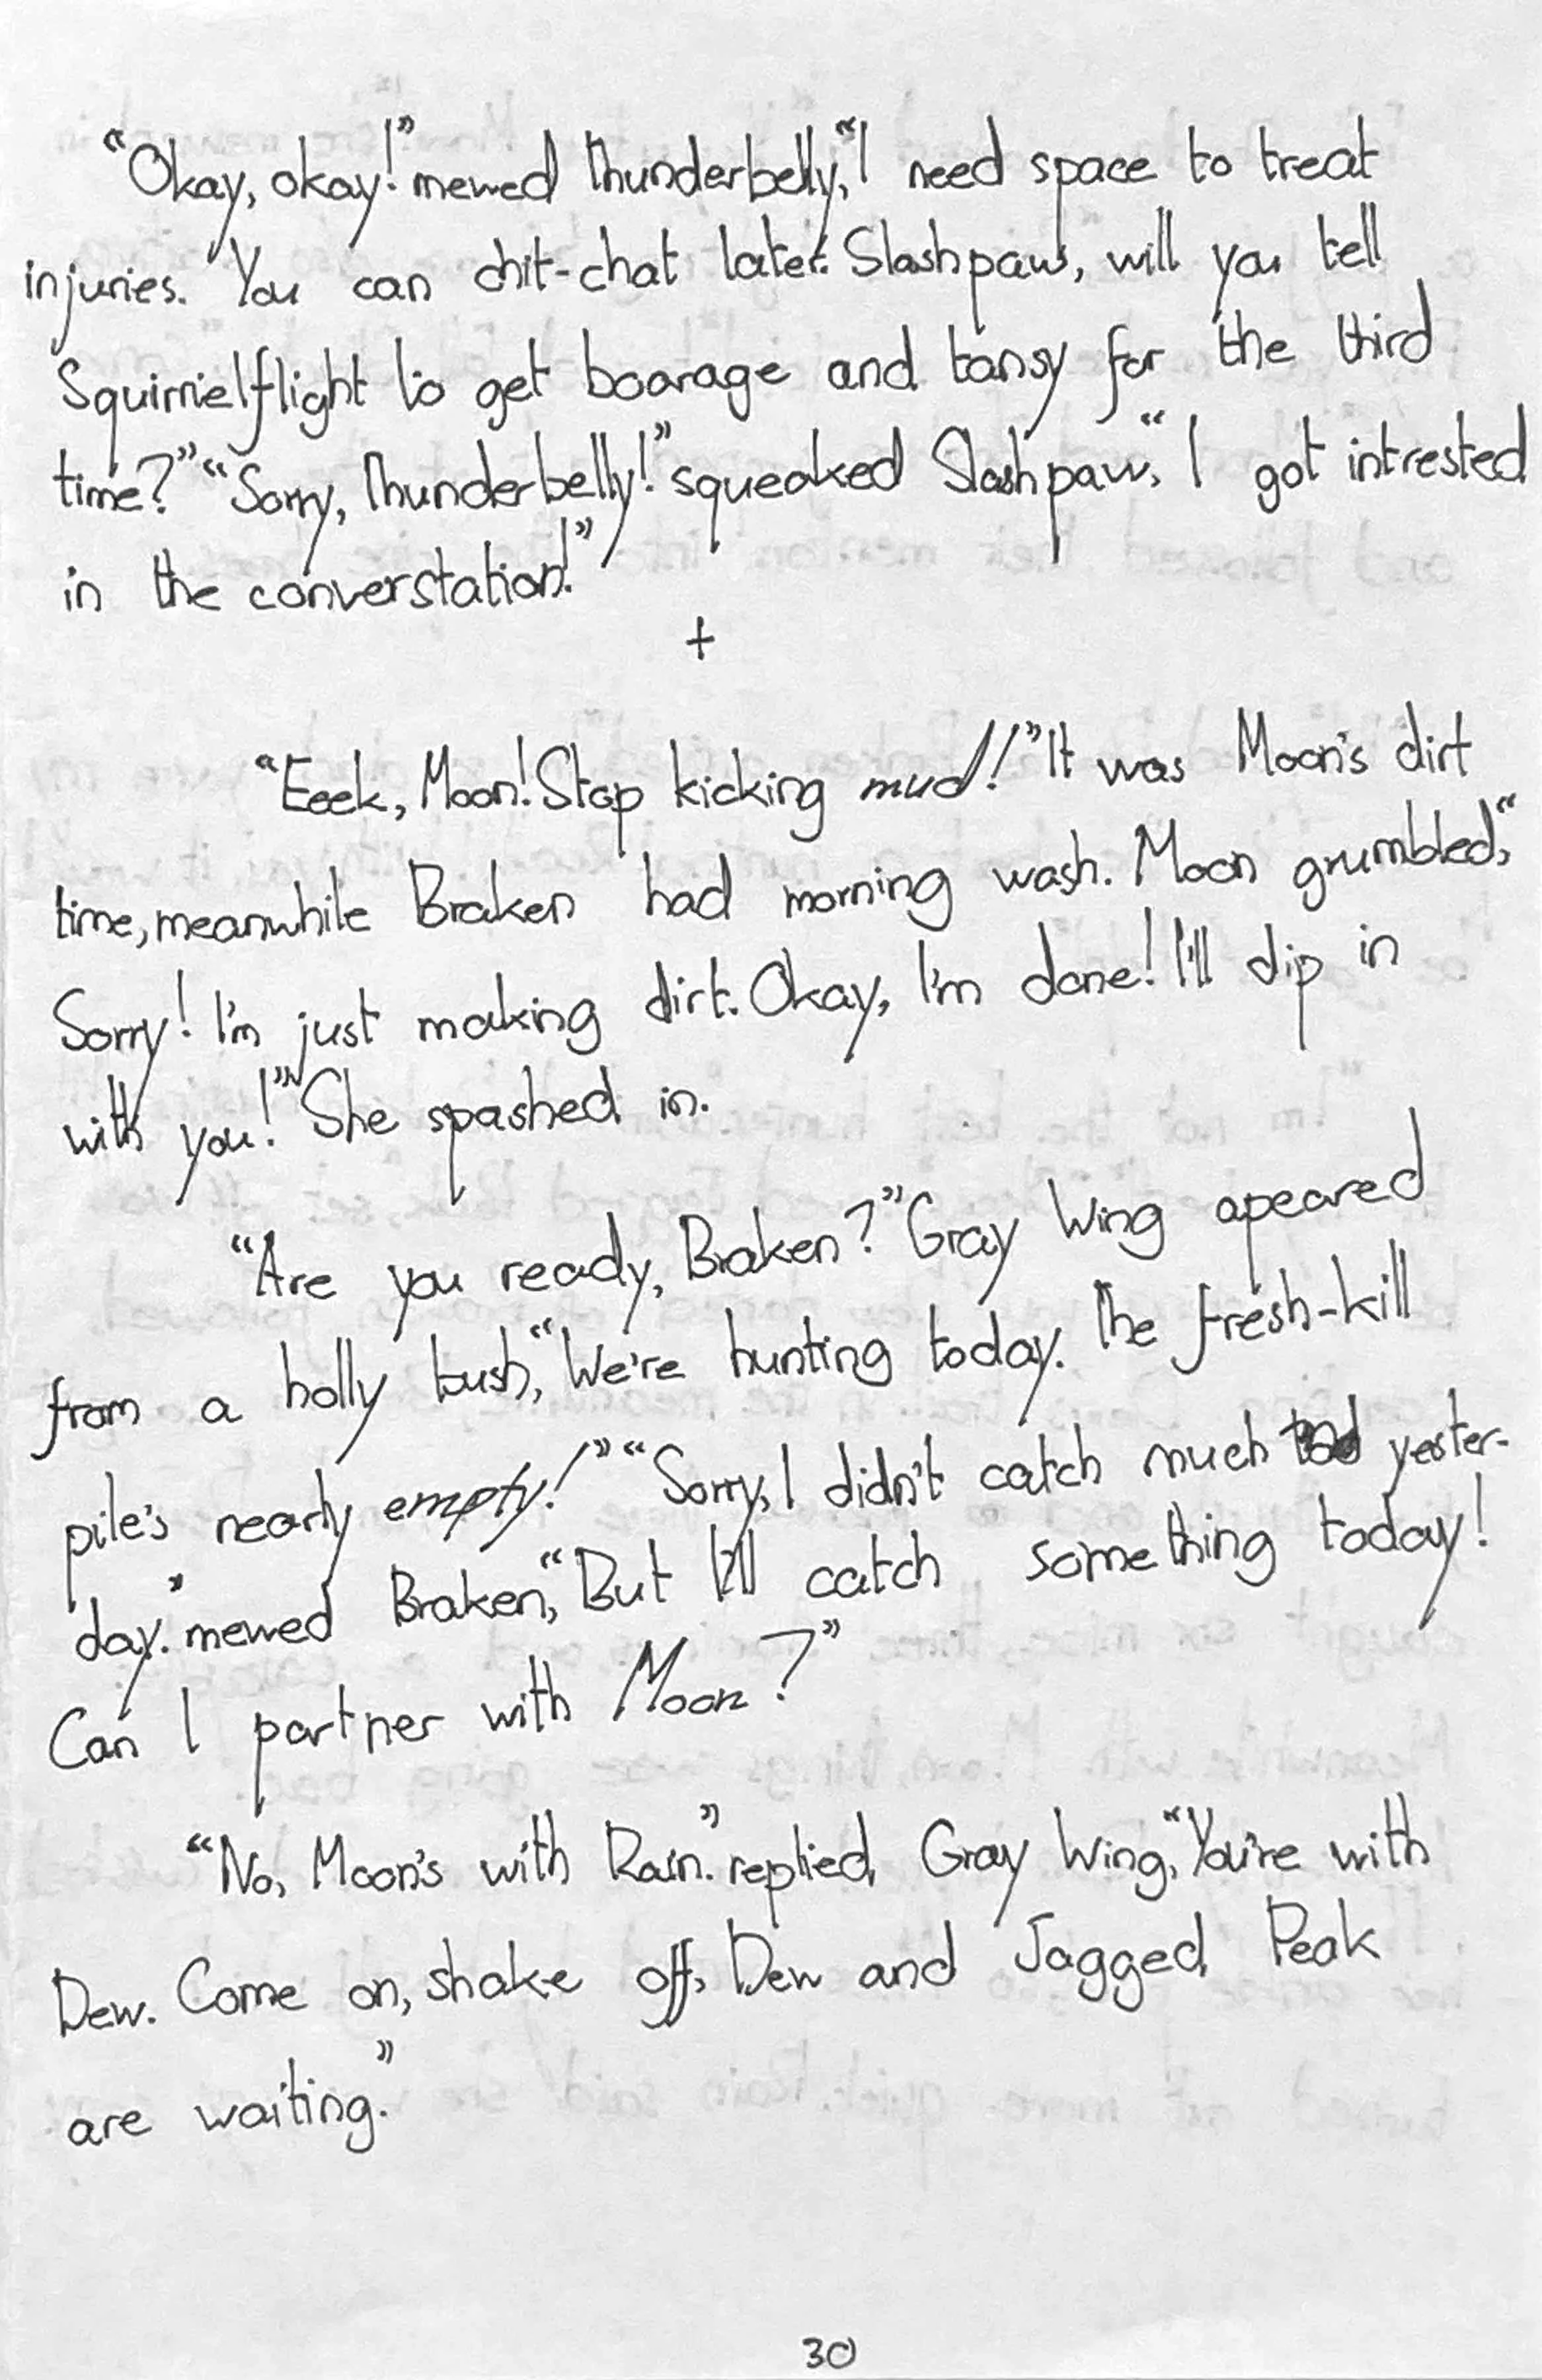 "Okay, okay!" mewed Thunderbelly, "I need space to treat
injuries. You can chit-chat later. Slashpaw, will you tell
Squirrielflight to get boarage and tansy for the third
time?" "Sorry, Thunderbelly!" squeaked Slashpaw, "I got intrested
in the converstation!"
+
"Eeek, Moon! Stop kicking mud!" It was Moon's dirt
time, meanwhile Braken had morning wash. Moon grumbled, "
Sorry! I'm just making dirt. Okay, I'm done! I'll dip in
with you!" She spashed in.
"Are you ready, Braken?" Gray Wing apeared
from a holly bush, "We're hunting today. The fresh-kill
pile's nearly empty!" "Sorry, I didn't catch much yester-
day." mewed Braken, "But I'll catch something today!
Can I partner with Moon?"
"No, Moon's with Rain." replied Gray Wing, "You're with
Dew. Come on, shake off, Dew and Jagged Peak
are waiting."
30